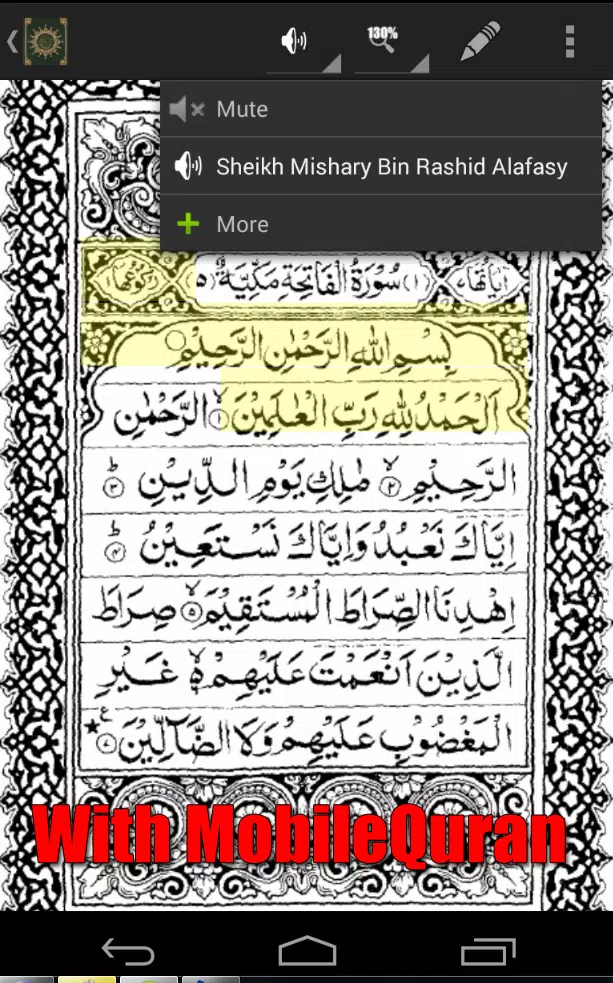 130%
Mute
Sheikh Mishary Bin Rashid Alafasy
More
اٰيَاتُهَا٧ (١) سُوْرَةُ الْفَاتِحَةِ مَكِّيَّةٌ (٥) رُكُوْعُهَا١
بِسْمِ اللهِ الرَّحْمٰنِ الرَّحِيْمِ
اَلْحَمْدُ لِلّٰهِ رَبِّ الْعٰلَمِيْنَ ۙ﴿١﴾ الرَّحْمٰنِ
الرَّحِيْمِ ۙ﴿٢﴾ مٰلِكِ يَوْمِ الدِّيْنِ ؕ﴿٣﴾
اِيَّاكَ نَعْبُدُ وَاِيَّاكَ نَسْتَعِيْنُ ؕ﴿٤﴾
اِهْدِنَا الصِّرَاطَ الْمُسْتَقِيْمَ ۙ﴿٥﴾ صِرَاطَ
الَّذِيْنَ اَنْعَمْتَ عَلَيْهِمْ ۙ﴿٦﴾ غَيْرِ
الْمَغْضُوْبِ عَلَيْهِمْ وَلَا الضَّآلِّيْنَ ﴿٧﴾ ع
With MobileQuran